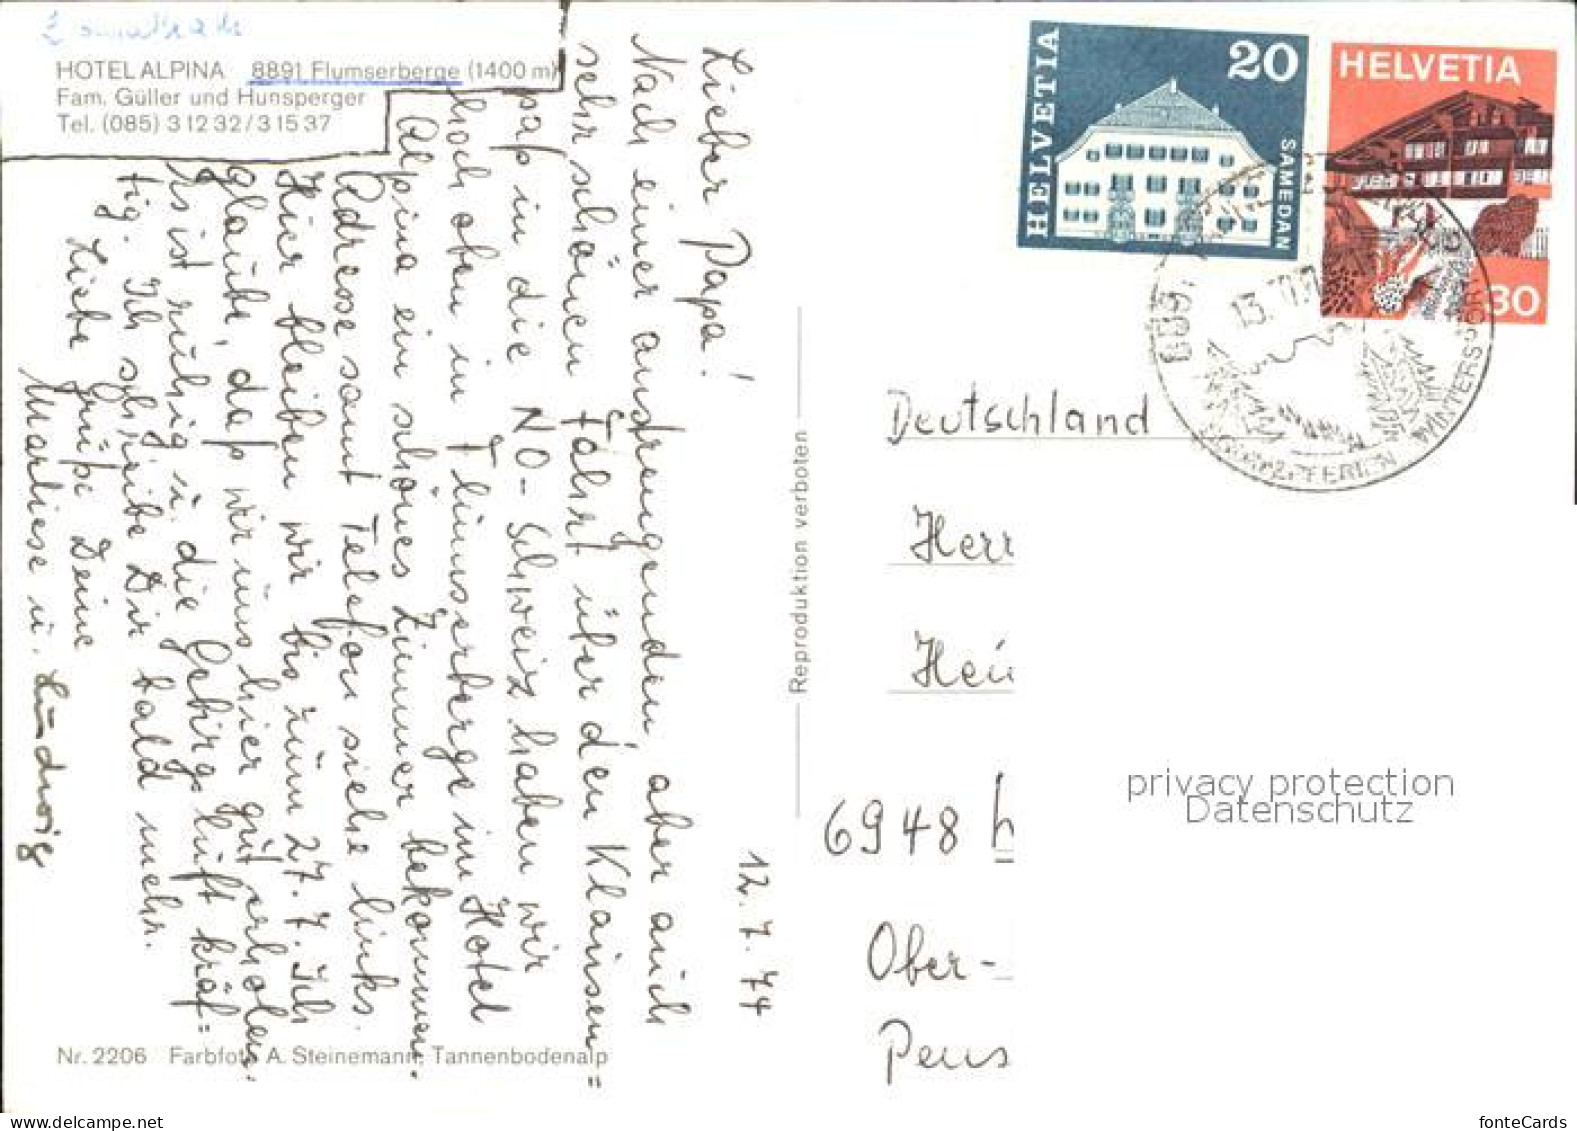 HOTEL ALPINA 8891 Flumserberge (1400 m)
Fam. Güller und Hunsperger
Tel. (085) 3 12 32 / 3 15 37
12. 7. 74
Lieber Papa!
Nach einer anstrengenden, aber auch
sehr schönen Fahrt über den Klausen=
paß in die NO-Schweiz haben wir
hoch oben in Flumserberge im Hotel
Alpina ein schönes Zimmer bekommen.
Adresse samt Telefon siehe links.
Hier bleiben wir bis zum 27. 7. Ich
glaube, daß wir uns hier gut erholen.
Es ist ruhig u. die Gebirgsluft kräf=
tig. Ich schreibe Dir bald mehr.
Liebe Grüße Deine
Marliese u. Ludwig
Nr. 2206 Farbfoto A. Steinemann, Tannenbodenalp
Reproduktion verboten
HELVETIA
20
SAMEDAN
HELVETIA
30
8891
13.
WINTERSPORT
FERIEN
Deutschland
Herr
Hei
6948
Ober-
Pens
privacy protection
Datenschutz
www.delcampe.net
fonteCards